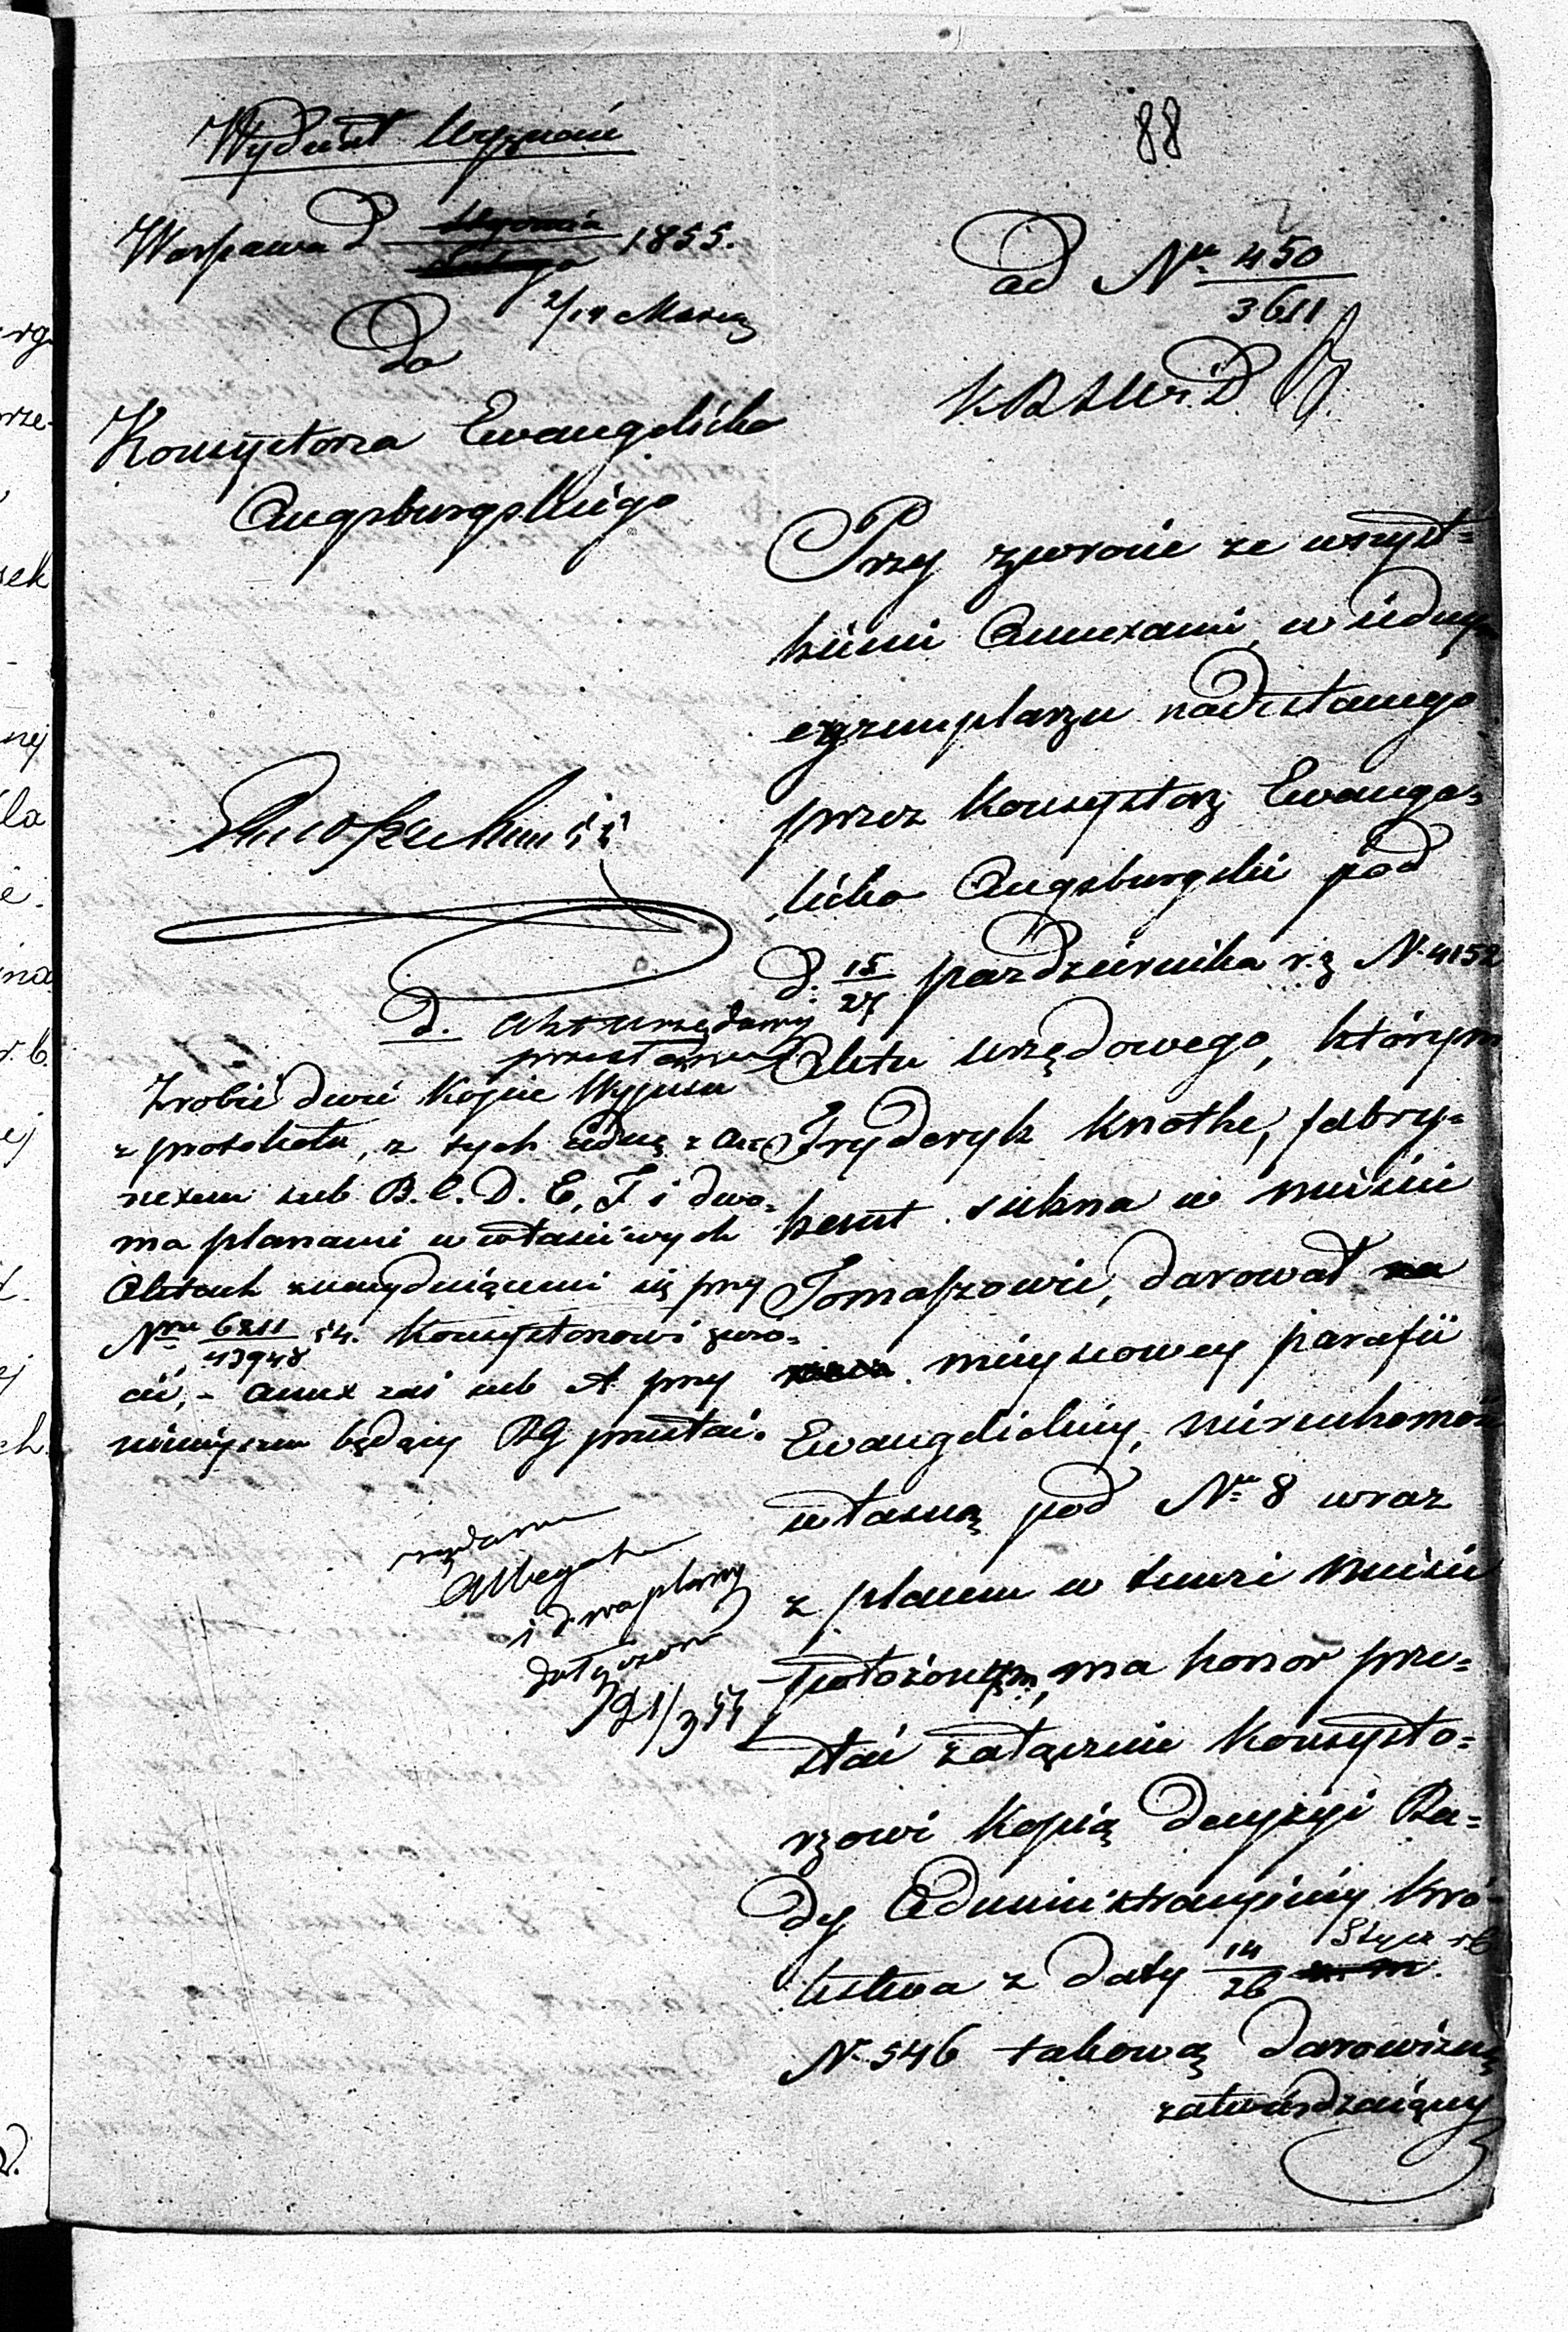 88
Wydział Wyznań
Warszawa d Stycznia 1855.
2/14 Marca
Do
Konsystorza Ewangelicko
Augsburgskiego
ad Nr 450/3611
K R S W i D
Przy zwrocie ze wszyst=
kiemi Annexami, w iednym
egzemplarzu nadesłanego
przez Konsystorz Ewange=
licko Augsburgski pod
d. 15/27 pazdziernika r. z N. 4152
Aktu urzędowego, którym
Fryderyk Knothe, fabry=
kant sukna w mieście
Tomaszowie, darował
mieyscowey parafii
Ewangelickiey, nieruchomość
własną pod Nr 8 wraz
z placem w temże mieście
położonym, ma honor prze=
słać załącznie Konsysto=
rzowi Kopią decyzyi Ra=
dy Administracyiney Kró
lestwa z daty 14/26 Stycz r b
N. 546 takową darowiznę
zatwierdzaiącey
d. akt urzędowy
Zrobić dwie Kopie Wypisu
z protokołu, z tych iedną z An
nexem sub B. C. D. E, F i dwo=
ma planami w właściwych
Aktach znaydującemi się przy
Nrze 6211/43948 54. Konsystorzowi zwró=
cić, - annex zaś sub A przy
ninieyszem będący RG przesłać.
Allegat
i dwa plany
dołączone
21/3 55